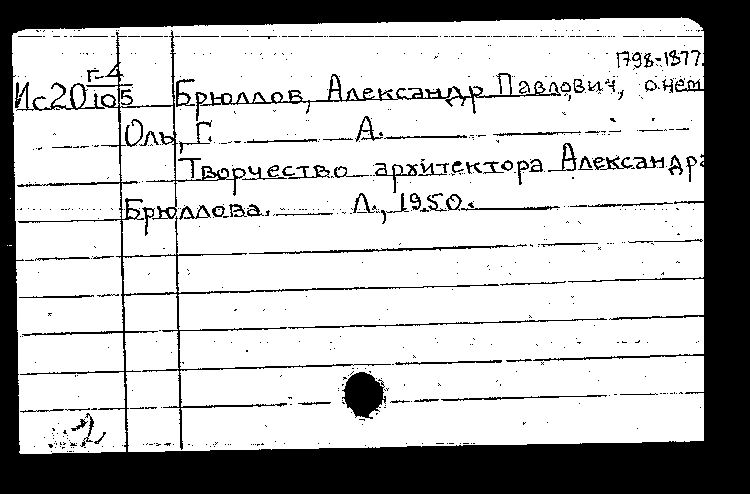 1798-1877.
Г-4
Ис20 105 Брюллов, Александр Павлович, о нем
Оль, Г. А.
Творчество архитектора Александра
Брюллова. Л., 1950.
2